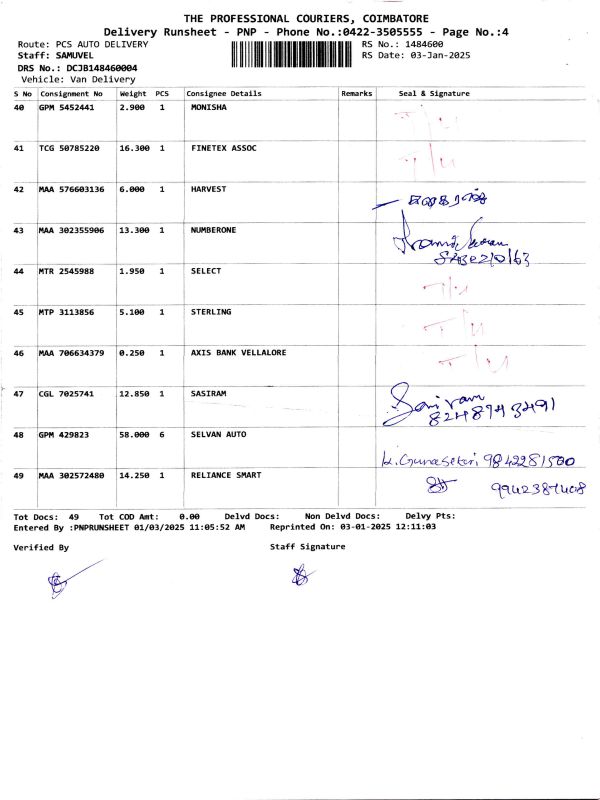 THE PROFESSIONAL COURIERS, COIMBATORE
Delivery Runsheet - PNP - Phone No.:0422-3505555 - Page No.:4
Route: PCS AUTO DELIVERY RS No.: 1484600
Staff: SAMUVEL RS Date: 03-Jan-2025
DRS No.: DCJB148460004
Vehicle: Van Delivery
S No Consignment No Weight PCS Consignee Details Remarks Seal & Signature
40 GPM 5452441 2.900 1 MONISHA
41 TCG 50785220 16.300 1 FINETEX ASSOC
42 MAA 576603136 6.000 1 HARVEST
43 MAA 302355906 13.300 1 NUMBERONE
44 MTR 2545988 1.950 1 SELECT
45 MTP 3113856 5.100 1 STERLING
46 MAA 706634379 0.250 1 AXIS BANK VELLALORE
47 CGL 7025741 12.850 1 SASIRAM Sairam
8248743491
48 GPM 429823 58.000 6 SELVAN AUTO
K. Gunasekri 9842281500
49 MAA 302572480 14.250 1 RELIANCE SMART
Tot Docs: 49 Tot COD Amt: 0.00 Delvd Docs: Non Delvd Docs: Delvy Pts:
Entered By :PNPRUNSHEET 01/03/2025 11:05:52 AM Reprinted On: 03-01-2025 12:11:03
Verified By Staff Signature